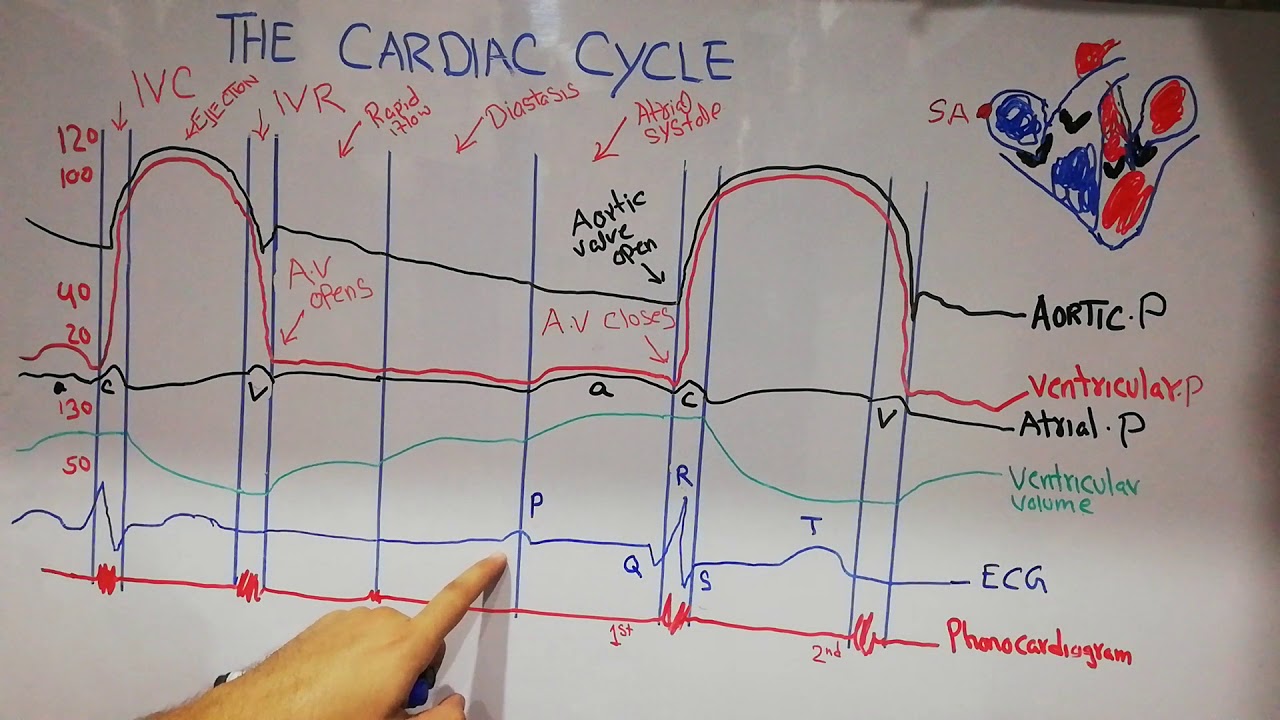 THE CARDIAC CYCLE
IVC
EJECTION
IVR
Rapid
Diastasis
Atrial
systole
SA
120
100
40
20
130
50
A.V
opens
Aortic
valve
open
A.V closes
a
c
V
a
c
V
AORTIC.P
Ventricular.P
Atrial.P
Ventricular
volume
P
Q
R
S
T
ECG
1st
2nd
Phonocardiogram